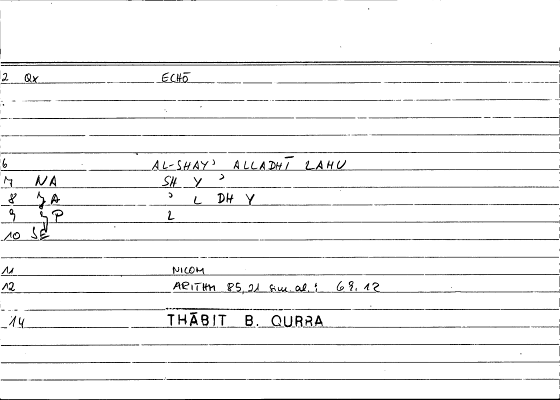 2 Qx ECHŌ
6 AL-SHAYʾ ALLADHĪ LAHU
7 NA SH Y ʾ
8 ʒA ʾ L DH Y
9 ʒP L
10 SE
11 NICOM
12 ARITHM 85, 21 : 69, 12
14 THĀBIT B. QURRA